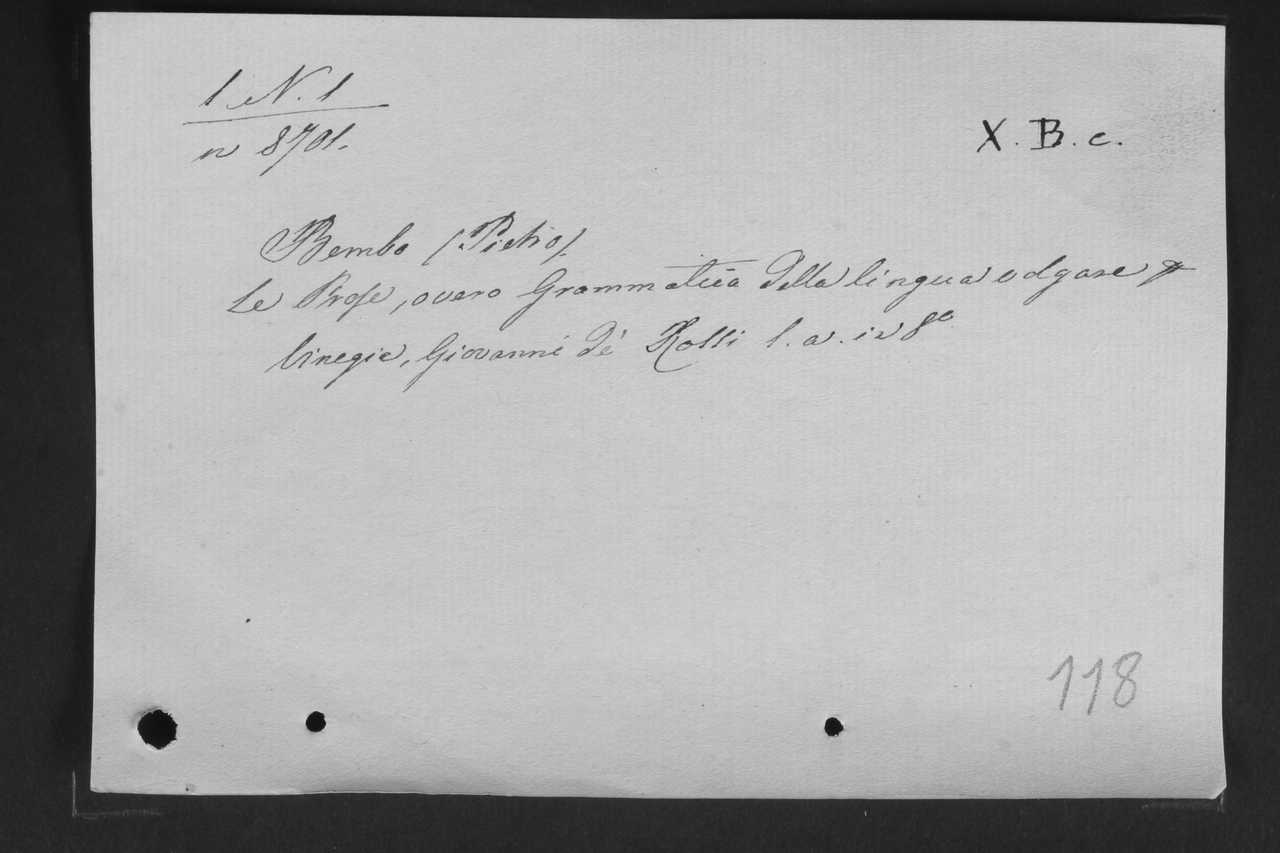 1. N. 1
n 8701.
X. B. c.
Bembo (Pietro).
Le Prose, overo Grammatica della lingua volgare
Vinegia, Giovanni de' Rossi s. a. in 8º
118